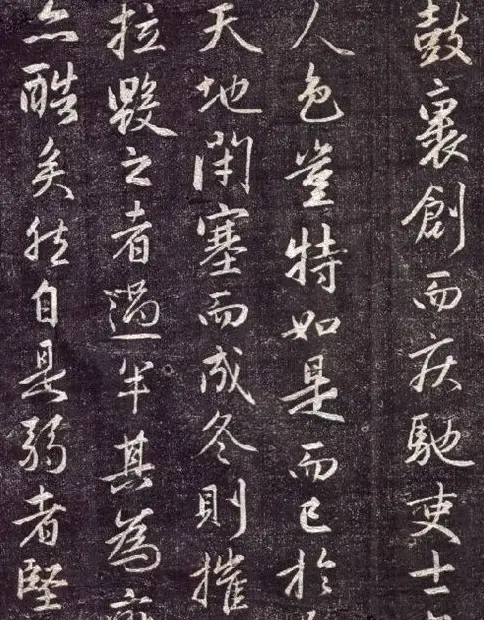 鼓裹創而疾馳吏士
人色豈特如是而已於
天地閉塞而成冬則摧
拉毀之者過半其為
亦酷矣然自是弱者堅